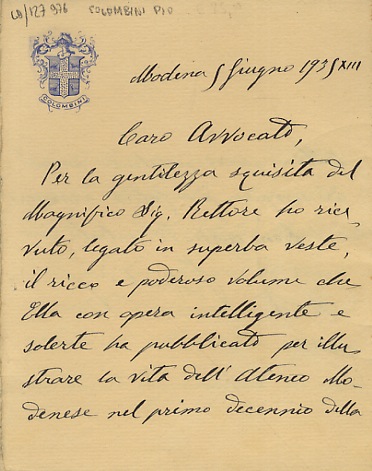 LD/127976 COLOMBINI PIO
COLOMBINI
Modena 5 Giugno 1935 XIII
Caro Avvocato,
Per la gentilezza squisita del
Magnifico Sig. Rettore ho rice,
vuto, legato in superba veste,
il ricco e poderoso volume che
Ella con opera intelligente e
solerte ha pubblicato per illu,
strare la vita dell' Ateneo Mo-
denese nel primo decennio della